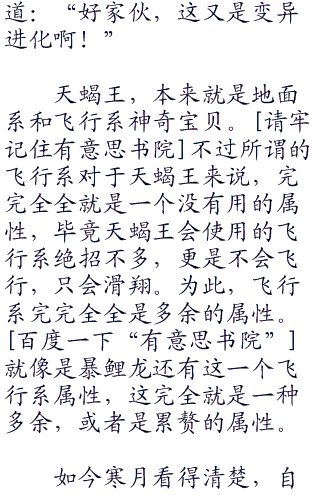 道：“好家伙，这又是变异
进化啊！”
天蝎王，本来就是地面
系和飞行系神奇宝贝。[请牢
记住有意思书院]不过所谓的
飞行系对于天蝎王来说，完
完全全就是一个没有用的属
性，毕竟天蝎王会使用的飞
行系绝招不多，更是不会飞
行，只会滑翔。为此，飞行
系完完全全是多余的属性。
[百度一下“有意思书院”]
就像是暴鲤龙还有这一个飞
行系属性，这完全就是一种
多余，或者是累赘的属性。
如今寒月看得清楚，自